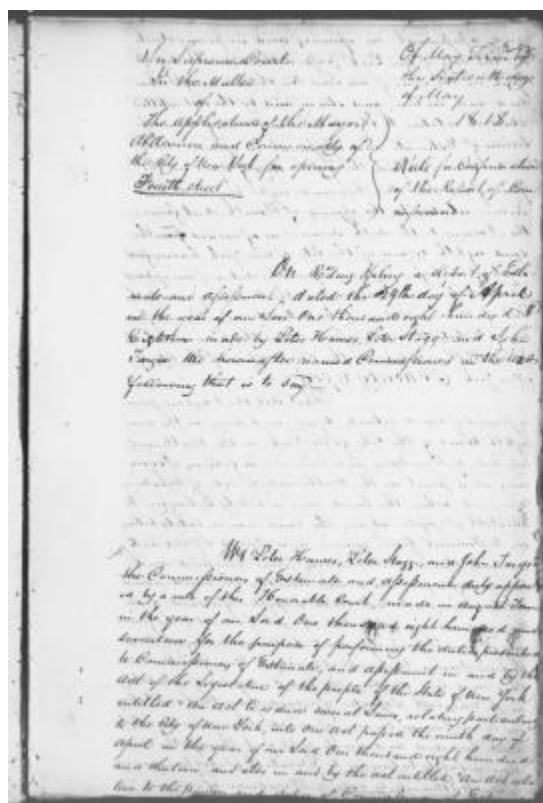 In Supreme Court
In the Matter
of
The application of the Mayor
Aldermen and Commonalty of
the City of New York for opening
Fourth Street
Of May Term
the Sixteenth day
of May
1818
Rule for Confirmation
of the Report of Com
missioners
On Reading &filing a report of Esti
mate and assessment, dated the 29th day of April
in the year of our Lord One thousand eight hundred &
Eighteen made by Peter Hawes, Peter Stagg and John
the hereinafter named Commissioners in the words
following that is to say
We Peter Hawes, Peter Stagg, and John
the Commissioners of Estimate and assessment duly appoint
ed by a rule of this Honorable Court, made in August Term
in the year of our Lord One thousand eight hundred and
seventeen for the purpose of performing the duties prescribed
to Commissioners of Estimate, and assessment in and by the
act of the Legislature of the people of the State of New York
entitled "An Act to reduce several Laws, relating particularly
to the City of New York, into one Act passed the ninth day of
April in the year of our Lord One thousand eight hundred
and thirteen, and also in and by the act entitled "An Act rela
tive to the